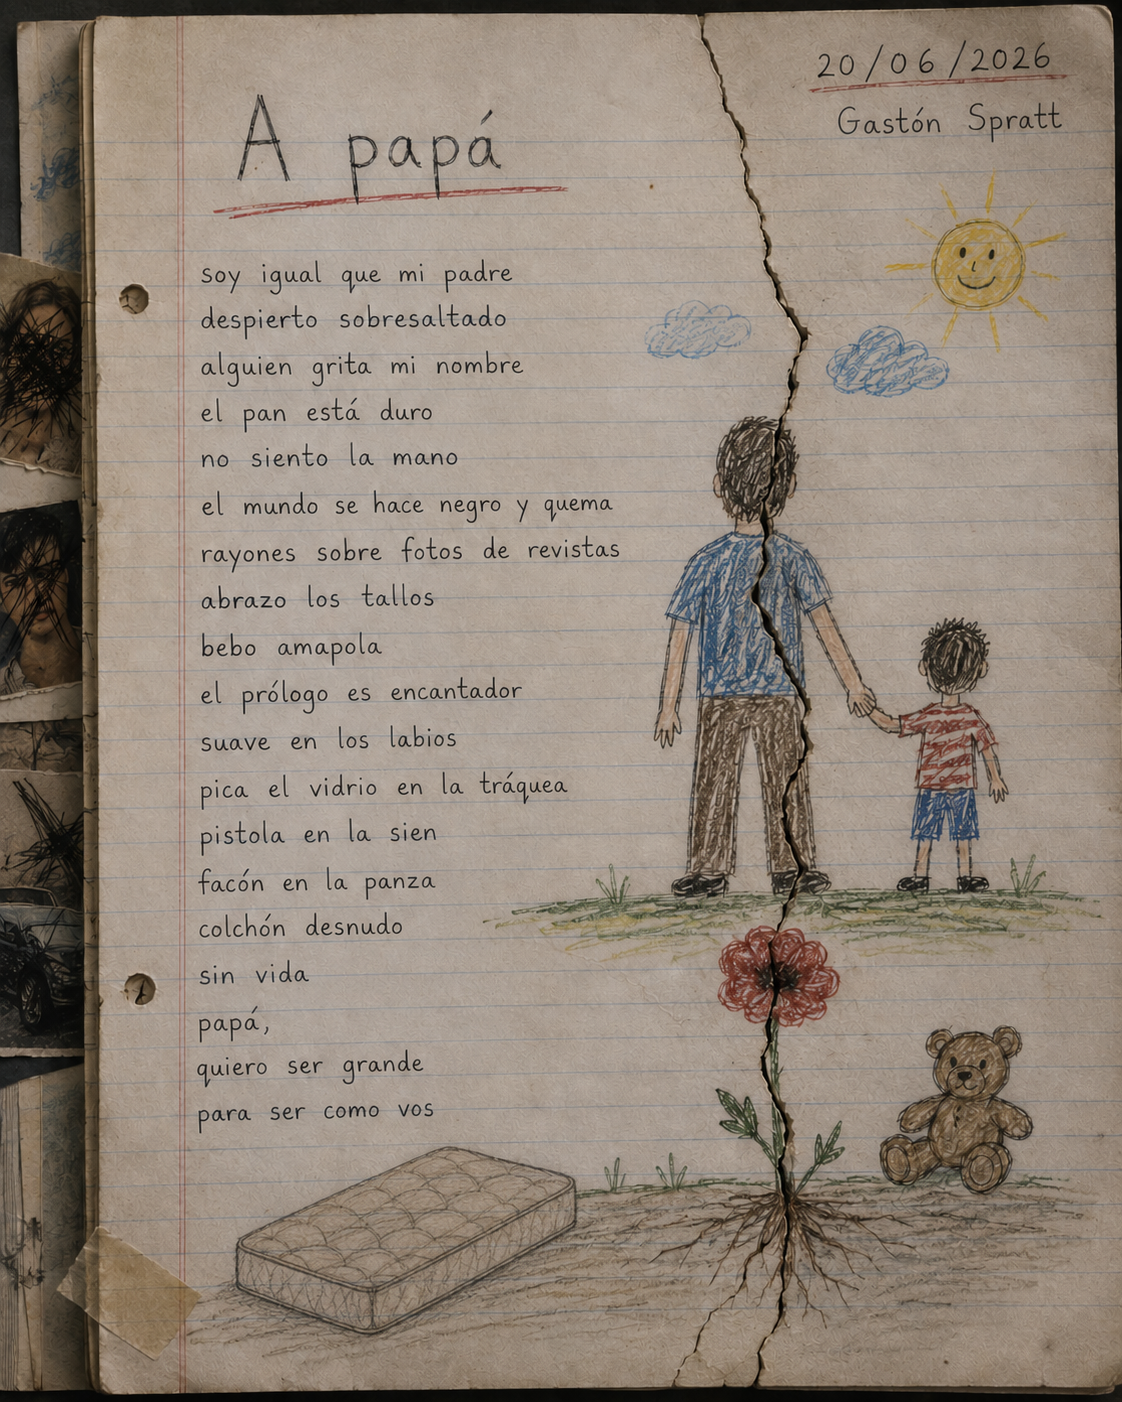 20/06/2026
Gastón Spratt
A papá
soy igual que mi padre
despierto sobresaltado
alguien grita mi nombre
el pan está duro
no siento la mano
el mundo se hace negro y quema
rayones sobre fotos de revistas
abrazo los tallos
bebo amapola
el prólogo es encantador
suave en los labios
pica el vidrio en la tráquea
pistola en la sien
facón en la panza
colchón desnudo
sin vida
papá,
quiero ser grande
para ser como vos